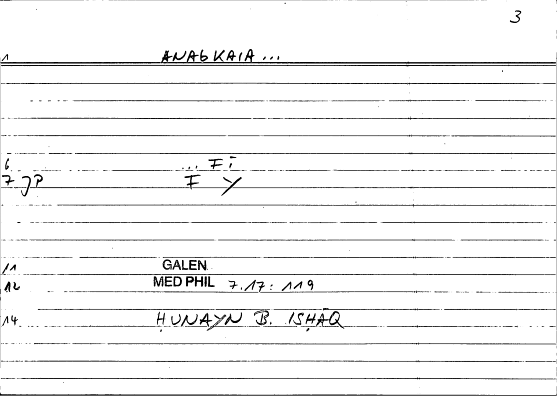 3
1 ANAGKAIA ...
6 ... Fī
7 JP F y
11 GALEN
12 MED PHIL 7.17: 119
14 ḤUNAYN B. ISḤĀQ